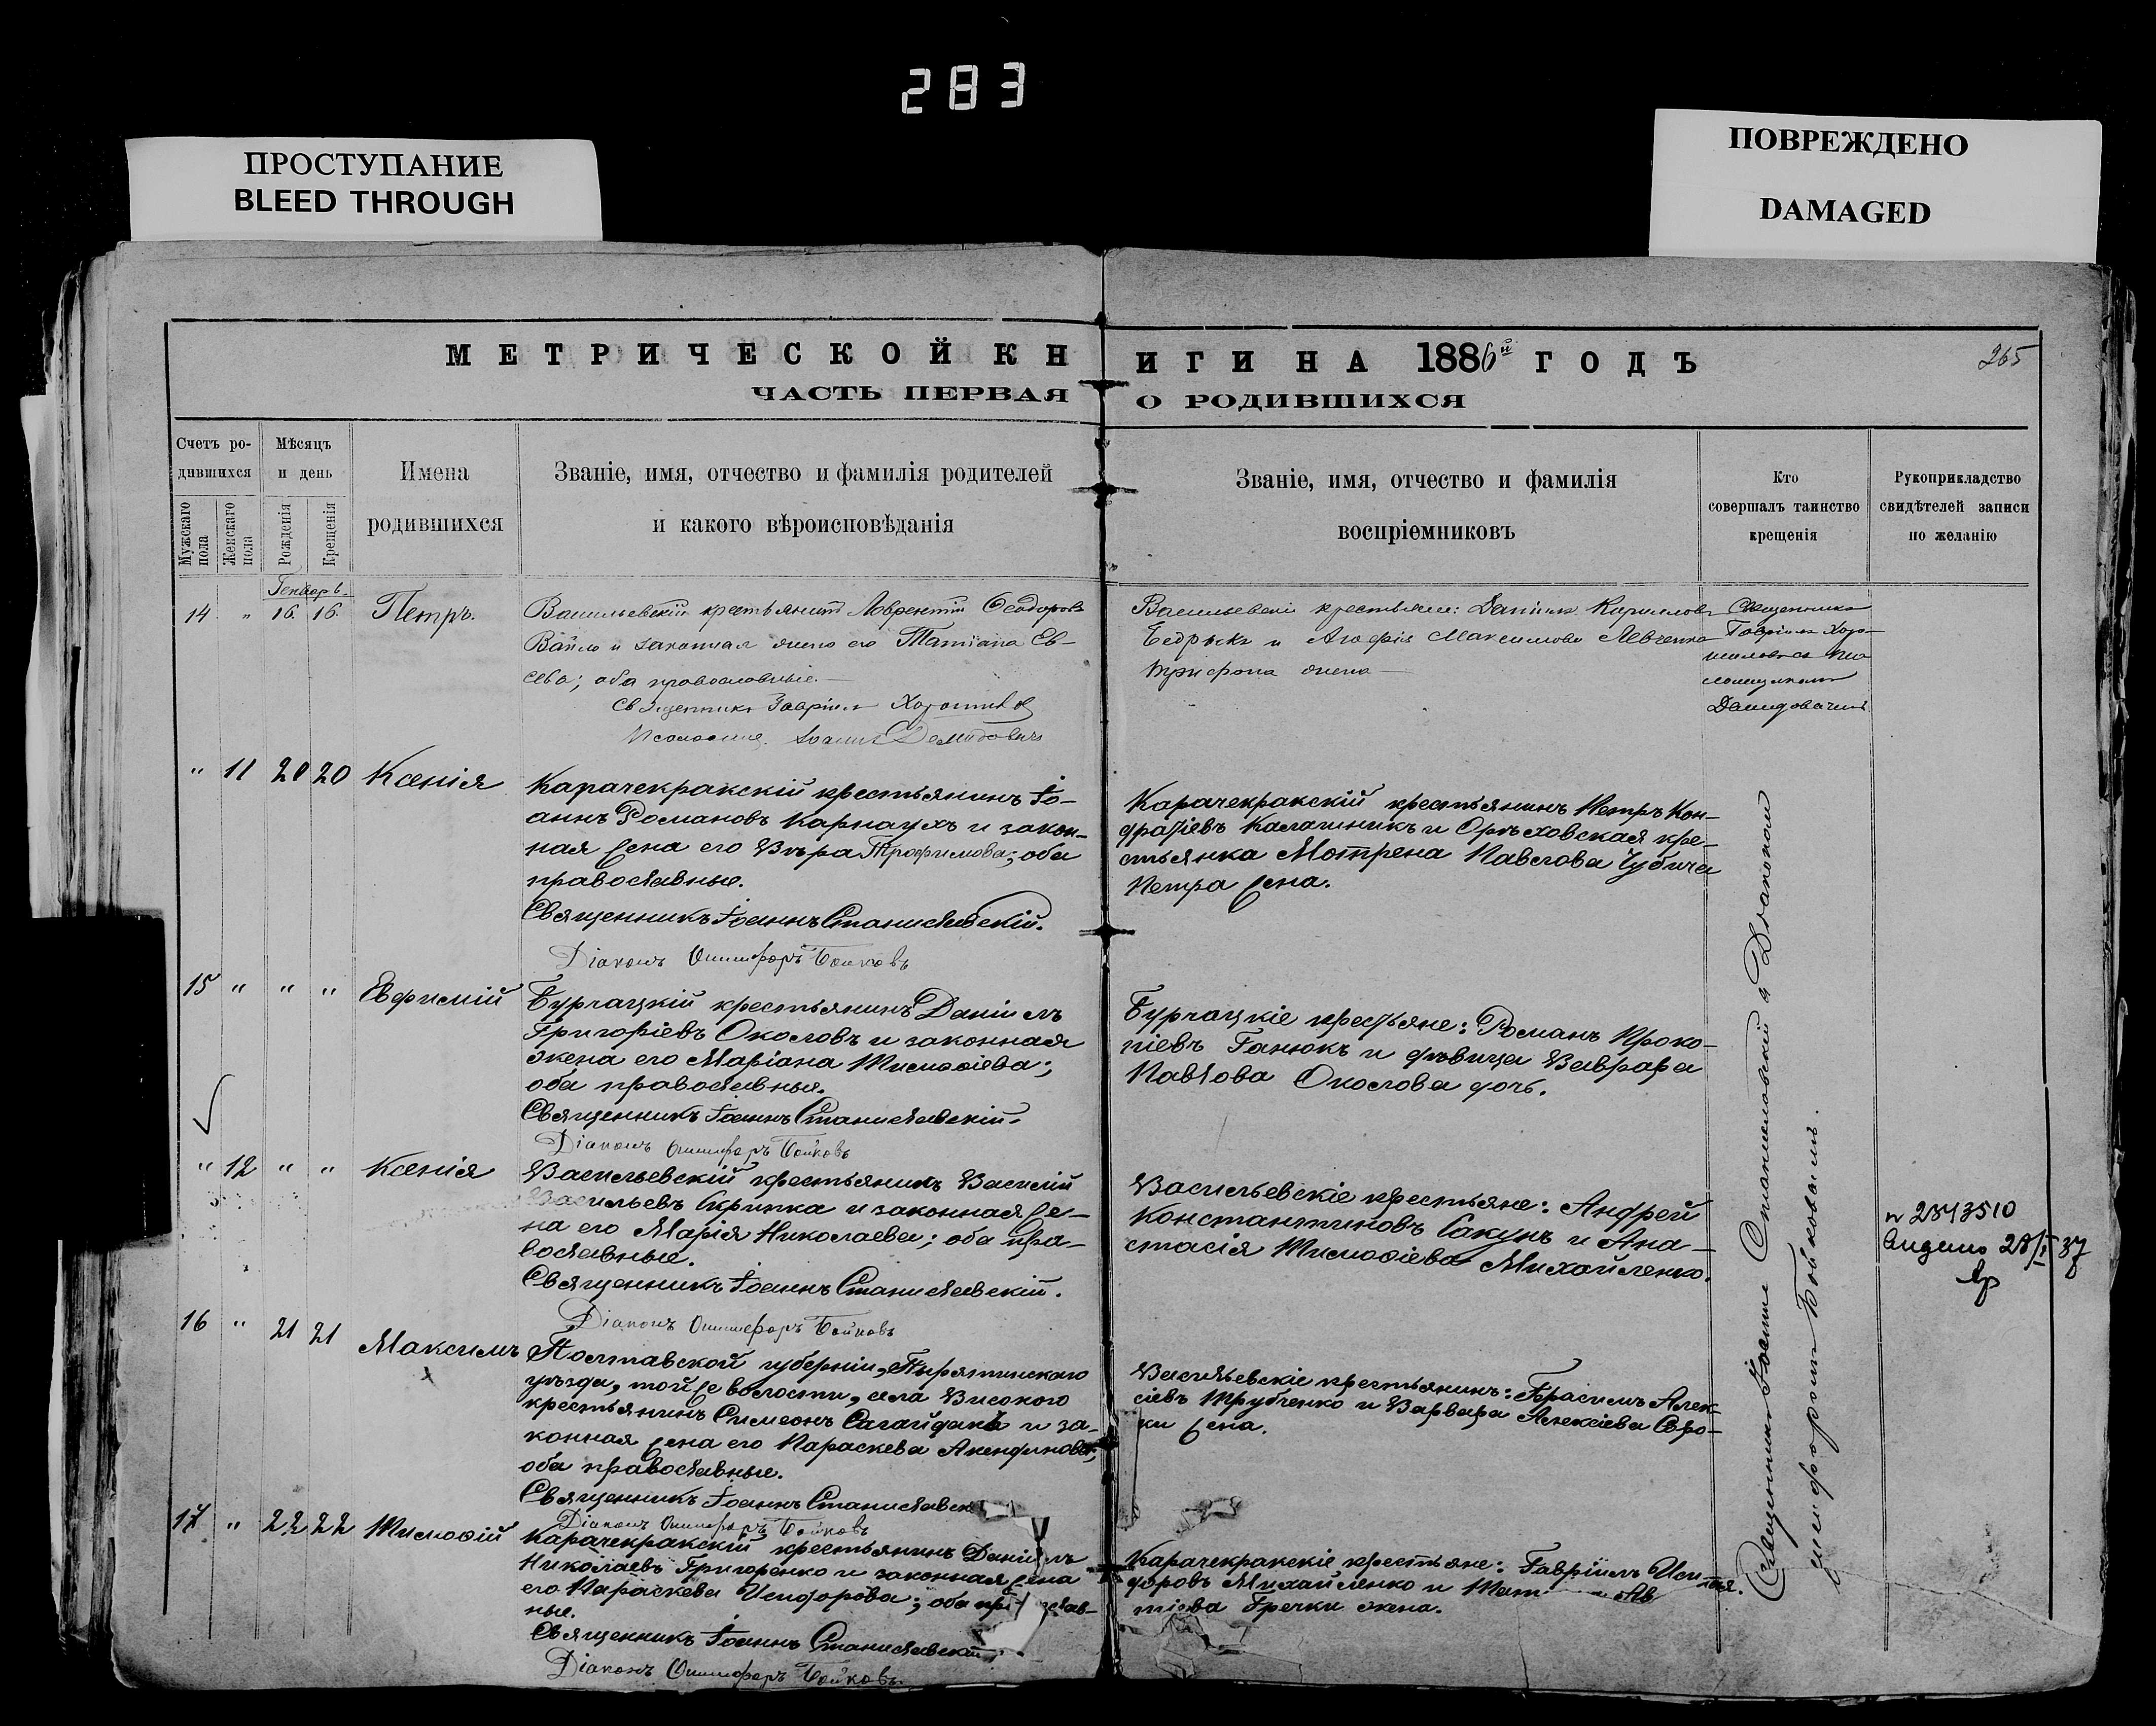 283
ПРОСТУПАНИЕ
BLEED THROUGH
ПОВРЕЖДЕНО
DAMAGED
МЕТРИЧЕСКОЙ КНИГИ НА 1886й ГОДЪ
265
ЧАСТЬ ПЕРВАЯ О РОДИВШИХСЯ
Счетъ ро-
дившихся
Мужскаго пола
Женскаго пола
Мѣсяцъ
и день
Рожденія
Крещенія
Имена
родившихся
Званіе, имя, отчество и фамилія родителей
и какого вѣроисповѣданія
Званіе, имя, отчество и фамилія
воспріемниковъ
Кто
совершалъ таинство
крещенія
Рукоприкладство
свидѣтелей записи
по желанію
Генварь
14 " 16 16 Петръ.
Васильевскій крестьянинъ Лаврентій Ѳеодоровъ
и законная жена его Татіана Ев-
сева; оба православные.
Священникъ Гавріилъ
Іоаннъ Демидовичъ
Васильевскіе крестьяне: Даніилъ Кирилловъ
и Агафія Максимова Левченко
Трифона жена
Священникъ
Гавріилъ
Демидовичемъ
" 11 20 20 Ксенія
Карачекракскій крестьянинъ Іо-
аннъ Романовъ Карнаухъ и закон-
ная жена его Вѣра Трофимова; оба
православные.
Священникъ Іоаннъ Станиславскій.
Діаконъ Онисифоръ Бойковъ
Карачекракскій крестьянинъ Петръ Кон-
дратіевъ Калашникъ и Орѣховская кре-
стьянка Мотрена Павлова
Петра жена.
15 " " " Евфимій
Бурчацкій крестьянинъ Даніилъ
Григоріевъ Околовъ и законная
жена его Маріана Тимоѳіева;
оба православные.
Священникъ Іоаннъ Станиславскій.
Діаконъ Онисифоръ Бойковъ
Бурчацкіе крестьяне: Романъ Проко-
піевъ Ганюкъ и дѣвица Варвара
Павлова Околова дочь.
" 12 " " Ксенія
Васильевскій крестьянинъ Василій
Васильевъ Скрипка и законная же-
на его Марія Николаева; оба пра-
вославные.
Священникъ Іоаннъ Станиславскій.
Діаконъ Онисифоръ Бойковъ
Васильевскіе крестьяне: Андрей
Константиновъ Сакунъ и Ана-
стасія Тимоѳіева Михайленко.
№ 2343510
37
16 " 21 21 Максимъ
Полтавской губерніи, Пирятинскаго
уѣзда, той же волости, села Високого
крестьянинъ Симеонъ Сагайдакъ и за-
конная жена его Параскева Акендинова;
оба православные.
Священникъ Іоаннъ Станиславск
Діаконъ Онисифоръ Бойковъ
Васильевскіе крестьянинъ: Герасимъ Алек-
сіевъ Трубченко и Варвара Алексіева Соро-
ки жена.
17 " 22 22 Тимоѳій
Карачекракскій крестьянинъ Даніилъ
Николаевъ Григоренко и законная жена
его Параскева Исидорова; оба прав слав-
ные.
Священникъ Іоаннъ Станиславскій.
Діаконъ Онисифоръ Бойковъ.
Карачекракскіе крестьяне: Гавріилъ Иси-
доровъ Михайленко и
Гречки жена.
Священникъ Іоаннъ Станиславскій съ Діакономъ
Онисифоромъ Бойковымъ.